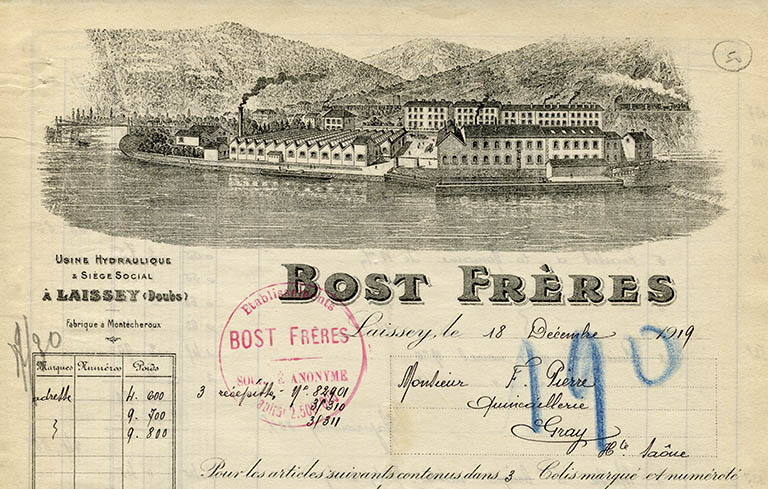 50
USINE HYDRAULIQUE
& SIÈGE SOCIAL
À LAISSEY (Doubs)
Fabrique à Montécheroux
BOST FRÈRES
Etablissements
BOST FRÈRES
ANONYME
Laissey, le 18 Décembre 1919
190
Monsieur F. Pierre
Quincaillerie
Gray
Hte Saône
Marques Numéros Poids
adresse 4. 600
9. 700
9. 800
3 récépissés - No 82901
31310
31311
Pour les articles suivants contenus dans 3 Colis marqué et numéroté